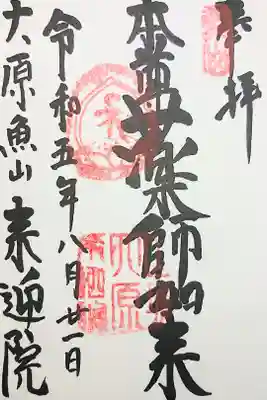 奉拝
本尊薬師如来
令和五年八月廿一日
大原魚山来迎院